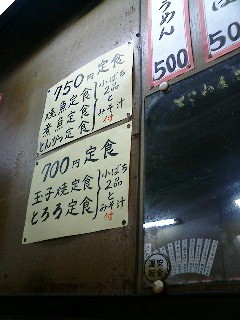 750円定食
焼魚定食
煮魚定食
とんかつ定食
小ばち
2品
と
みそ汁
付
700円定食
玉子焼定食
とろろ定食
小ばち
2品
と
みそ汁
付
うめん
500
500